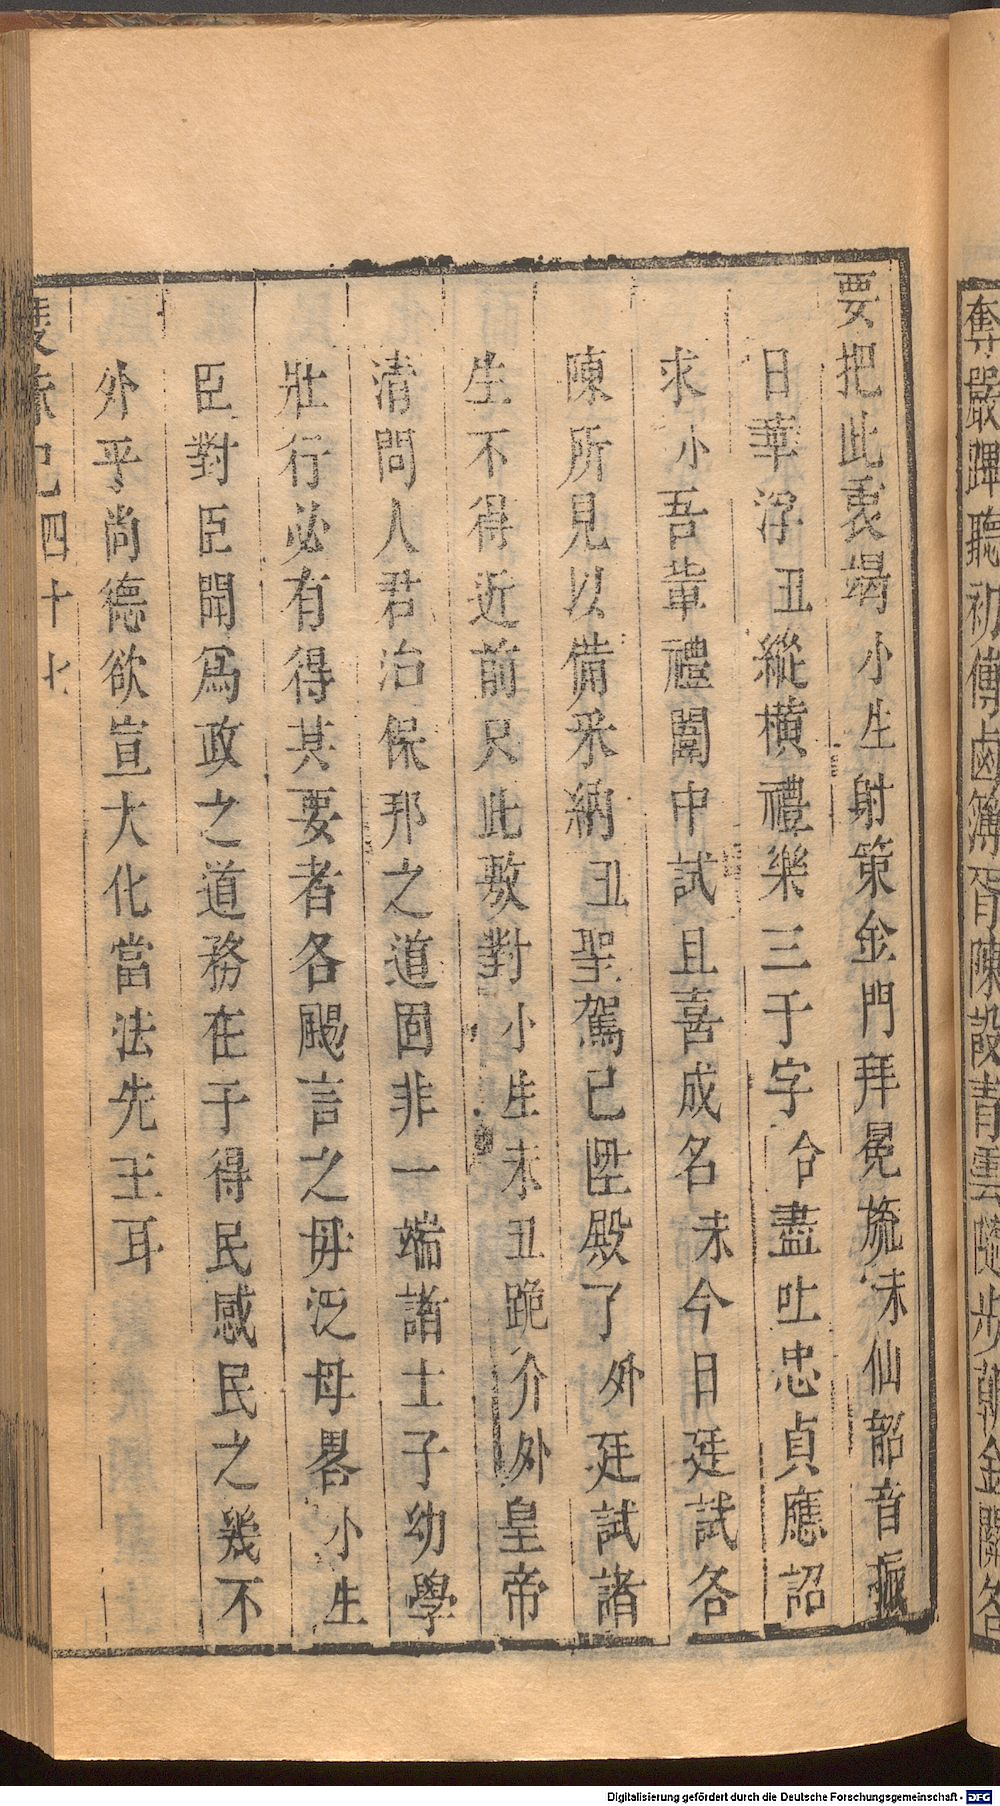 奪嚴蹕聽初傳鹵簿胥陳設青雲隨步朝金闕各
要把此衷竭小生射策金門拜冕旒末仙韶音振
日華浮丑縱橫禮樂三于字合盡吐忠貞應詔
求小吾軰禮闈中試且喜成名末今日廷試各
陳所見以備釆納丑聖駕已陞殿了外廷試諸
生不得近前只此敷對小生末丑跪介外皇帝
清問人君治保邦之道固非一端諸士子幼學
壯行必有得其要者各颺言之毋泛毋畧小生
臣對臣聞爲政之道務在于得民感民之幾不
外乎尚德欲宣大化當法先王耳
四十七
Digitalisierung gefördert durch die Deutsche Forschungsgemeinschaft - DFG